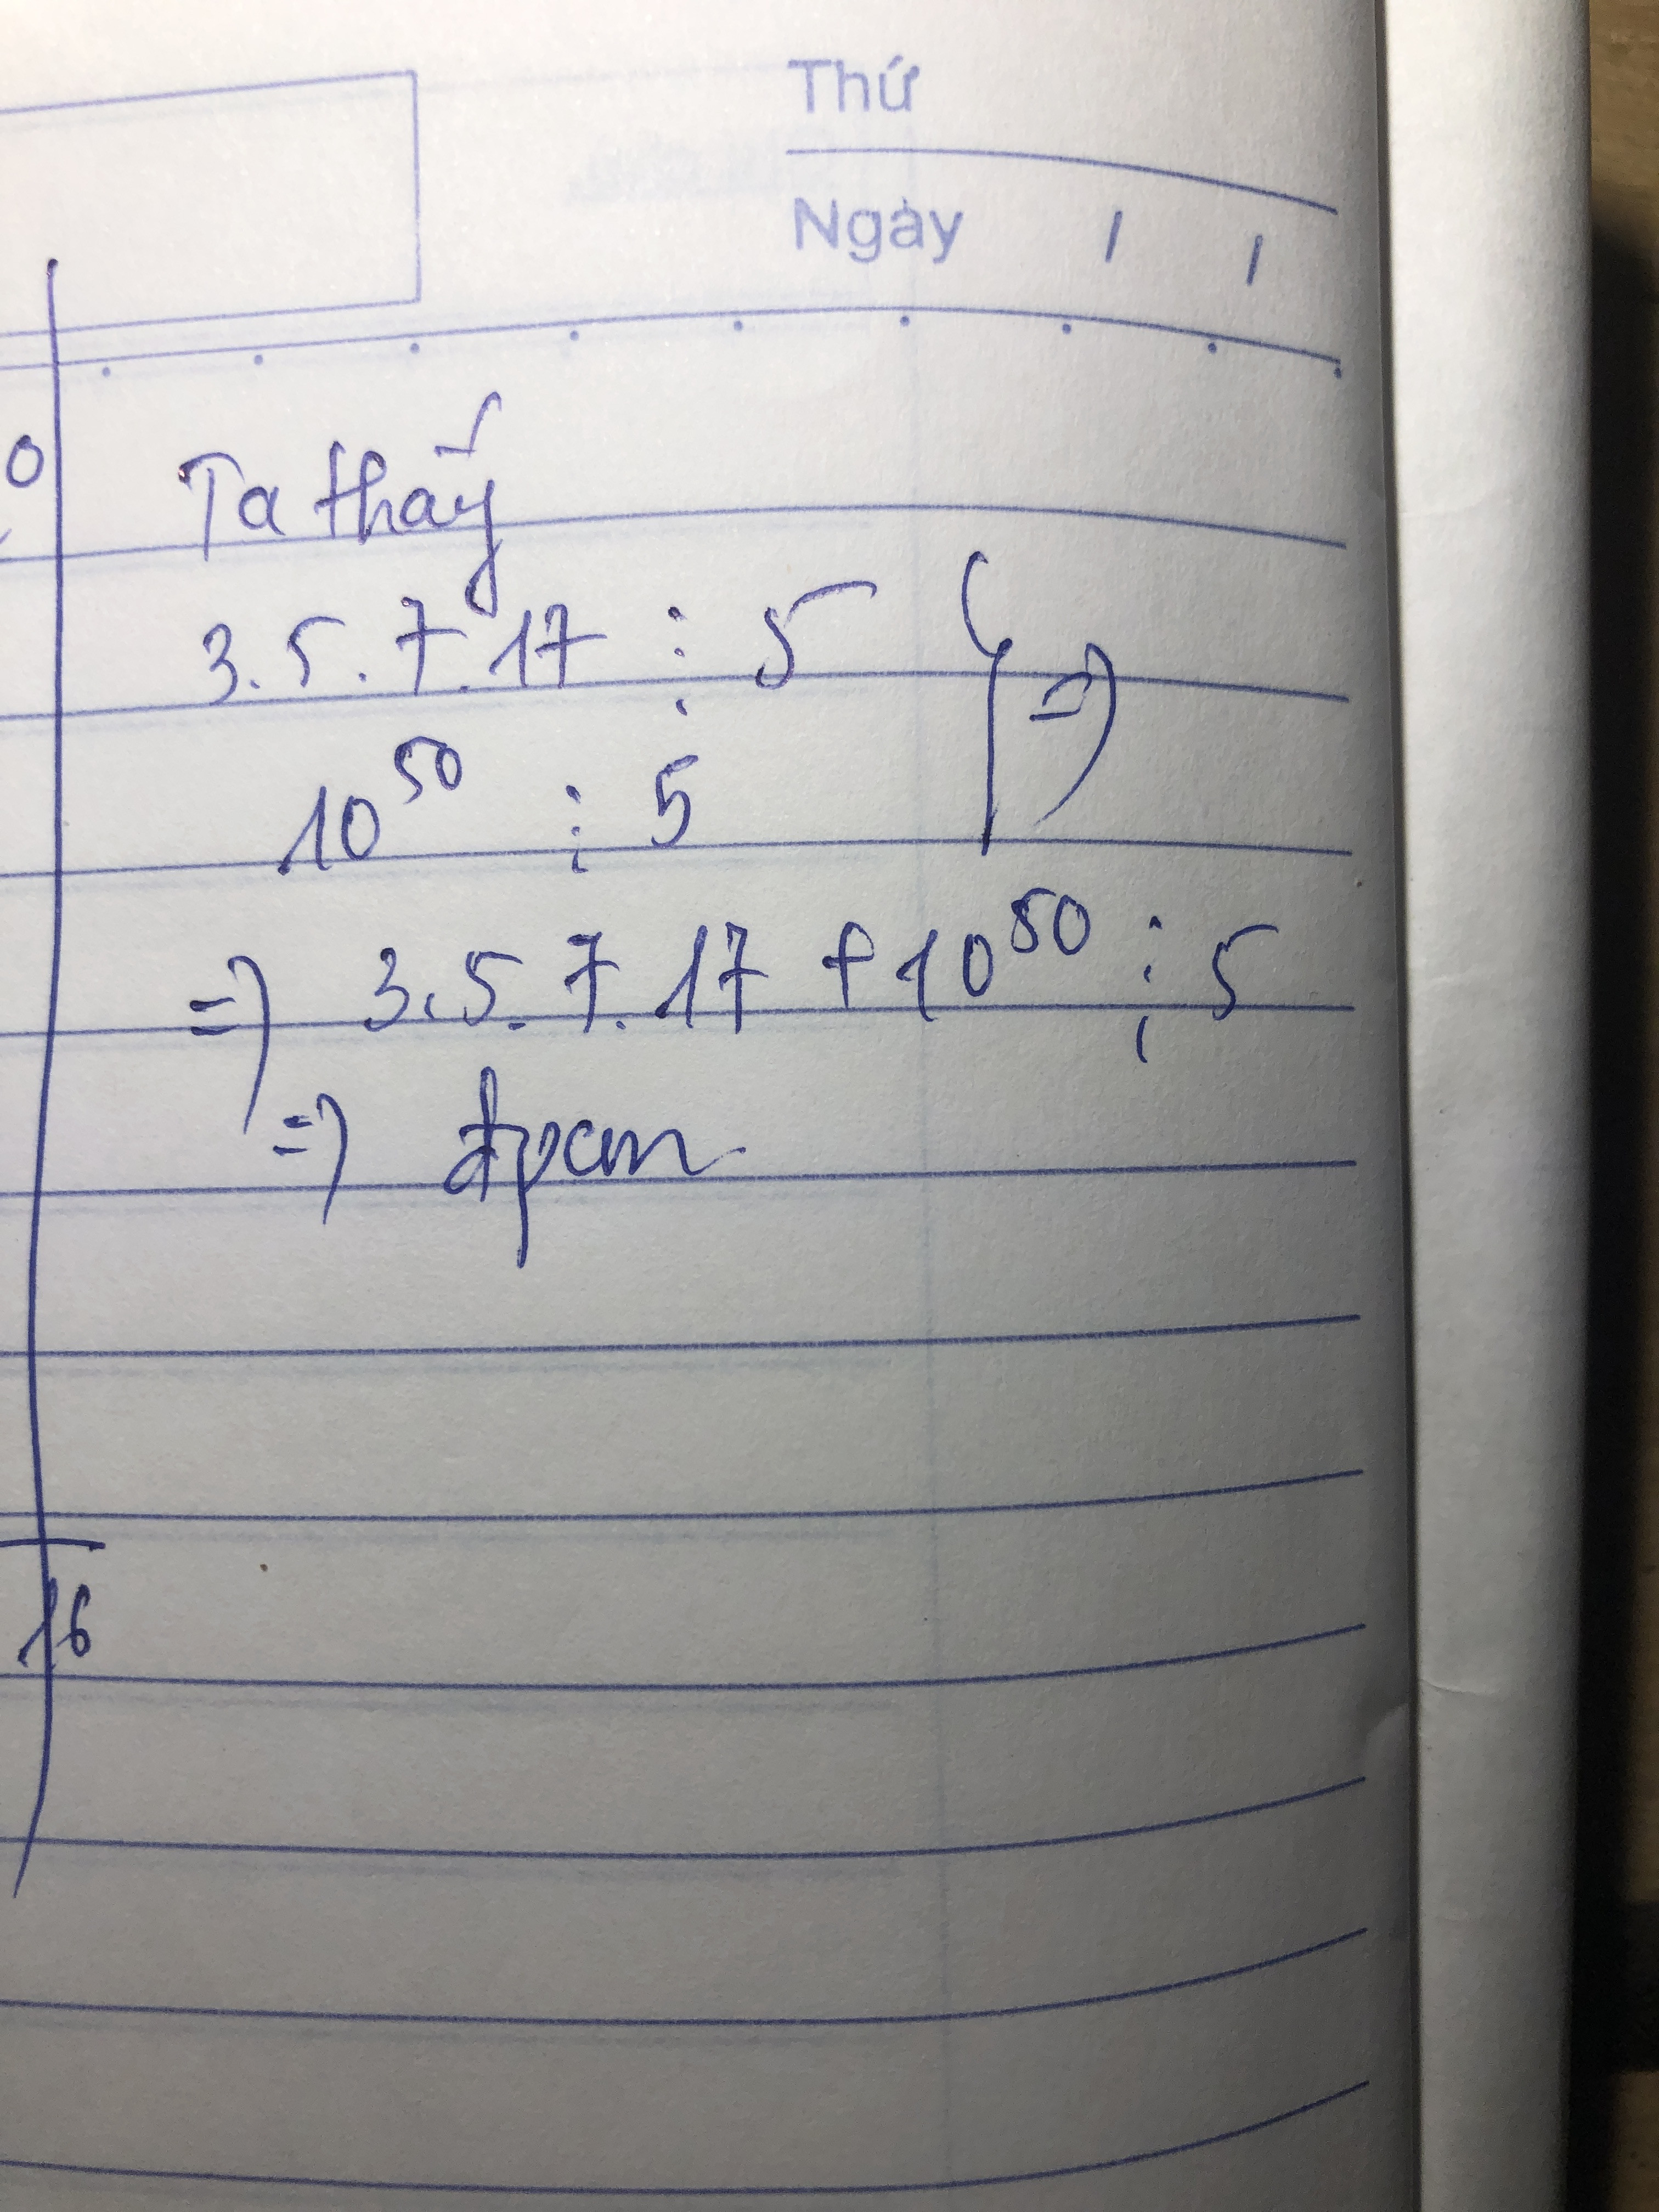 Thứ
Ngày / /
0
Ta thấy
3.5.7.17 ⋮ 5 } =>
10⁵⁰ ⋮ 5
=> 3.5.7.17 + 10⁵⁰ ⋮ 5
=> đpcm
16